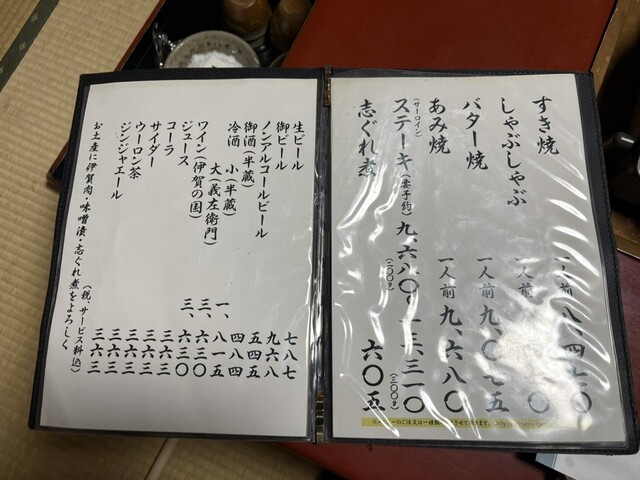 すき焼 一人前 八、四七〇
しゃぶしゃぶ
バター焼 一人前 九、〇七五
あみ焼 一人前 九、六八〇
(サーロイン)
ステーキ(要予約) 九、六八〇〜一六、三一〇
(二〇〇g) (三〇〇g)
志ぐれ煮 六〇五
生ビール 七八七
御ビール 九六八
ノンアルコールビール 五四五
御酒(半蔵) 四八四
冷酒 小(半蔵) 一、八一五
大(義左衛門) 三、六三〇
ワイン(伊賀の国) 三、六三〇
ジュース 三六三
コーラ 三六三
サイダー 三六三
ウーロン茶 三六三
ジンジャエール 三六三
(税、サービス料込)
お土産に伊賀肉・味噌漬・志ぐれ煮をよろしく